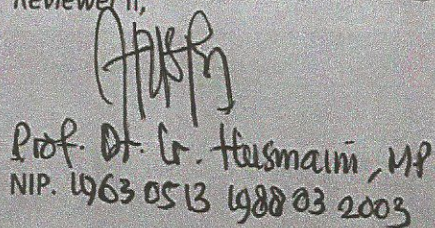 Reviewer II,
Prof. Dr. Ir. Husmaini, MP
NIP. 19630513 198803 2003